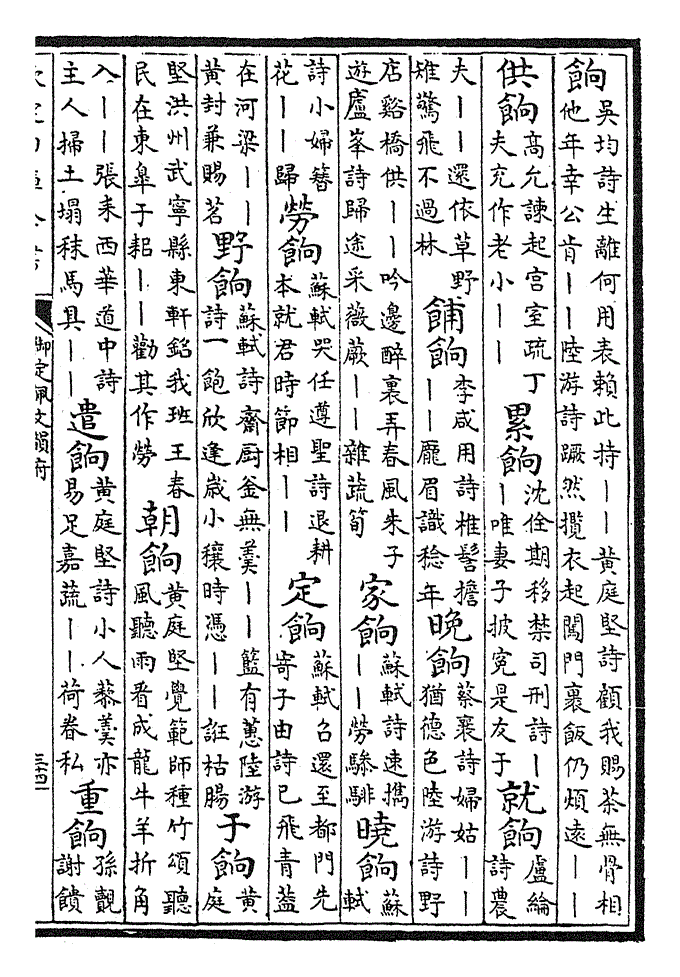 餉吳均詩生離何用表賴此持丨丨黄庭堅詩顧我賜茶無骨相他年幸公肯丨丨陸游詩蹶然攬衣起闖門裹飯仍煩遠丨丨
供餉髙允諫起宫室疏丁夫充作老小丨丨累餉沈佺期移禁司刑詩丨丨唯妻子披寃是友于就餉盧綸詩農
夫丨丨還依草野雉驚飛不過林餔餉李咸用詩椎髻擔丨丨龎眉識稔年晚餉蔡襄詩婦姑丨丨猶德色陸游詩野
店谿橋供丨丨吟邊醉裏弄春風朱子遊廬峯詩歸途采薇蕨丨丨雜蔬筍家餉蘇軾詩速擕丨丨勞驂騑曉餉蘇軾
詩小婦簪花丨丨歸勞餉蘇軾哭任遵聖詩退耕本就君時節相丨丨定餉蘇軾召還至都門先寄子由詩已飛青葢
在河梁丨丨黄封兼賜茗野餉蘇軾詩齋厨釡無羮丨丨籃有蕙陸游詩一飽欣逢嵗小穰時憑丨丨誑枯腸于餉黄庭
堅洪州武寧縣東軒銘我班王春民在東臯于耜丨丨勸其作勞朝餉黄庭堅覺範師種竹頌聽風聽雨看成龍牛羊折角
入丨丨張耒西華道中詩主人掃土塌秣馬具丨丨遣餉黄庭堅詩小人藜羮亦易足嘉蔬丨丨荷眷私重餉孫覿謝饋
御定佩文韻府
三四